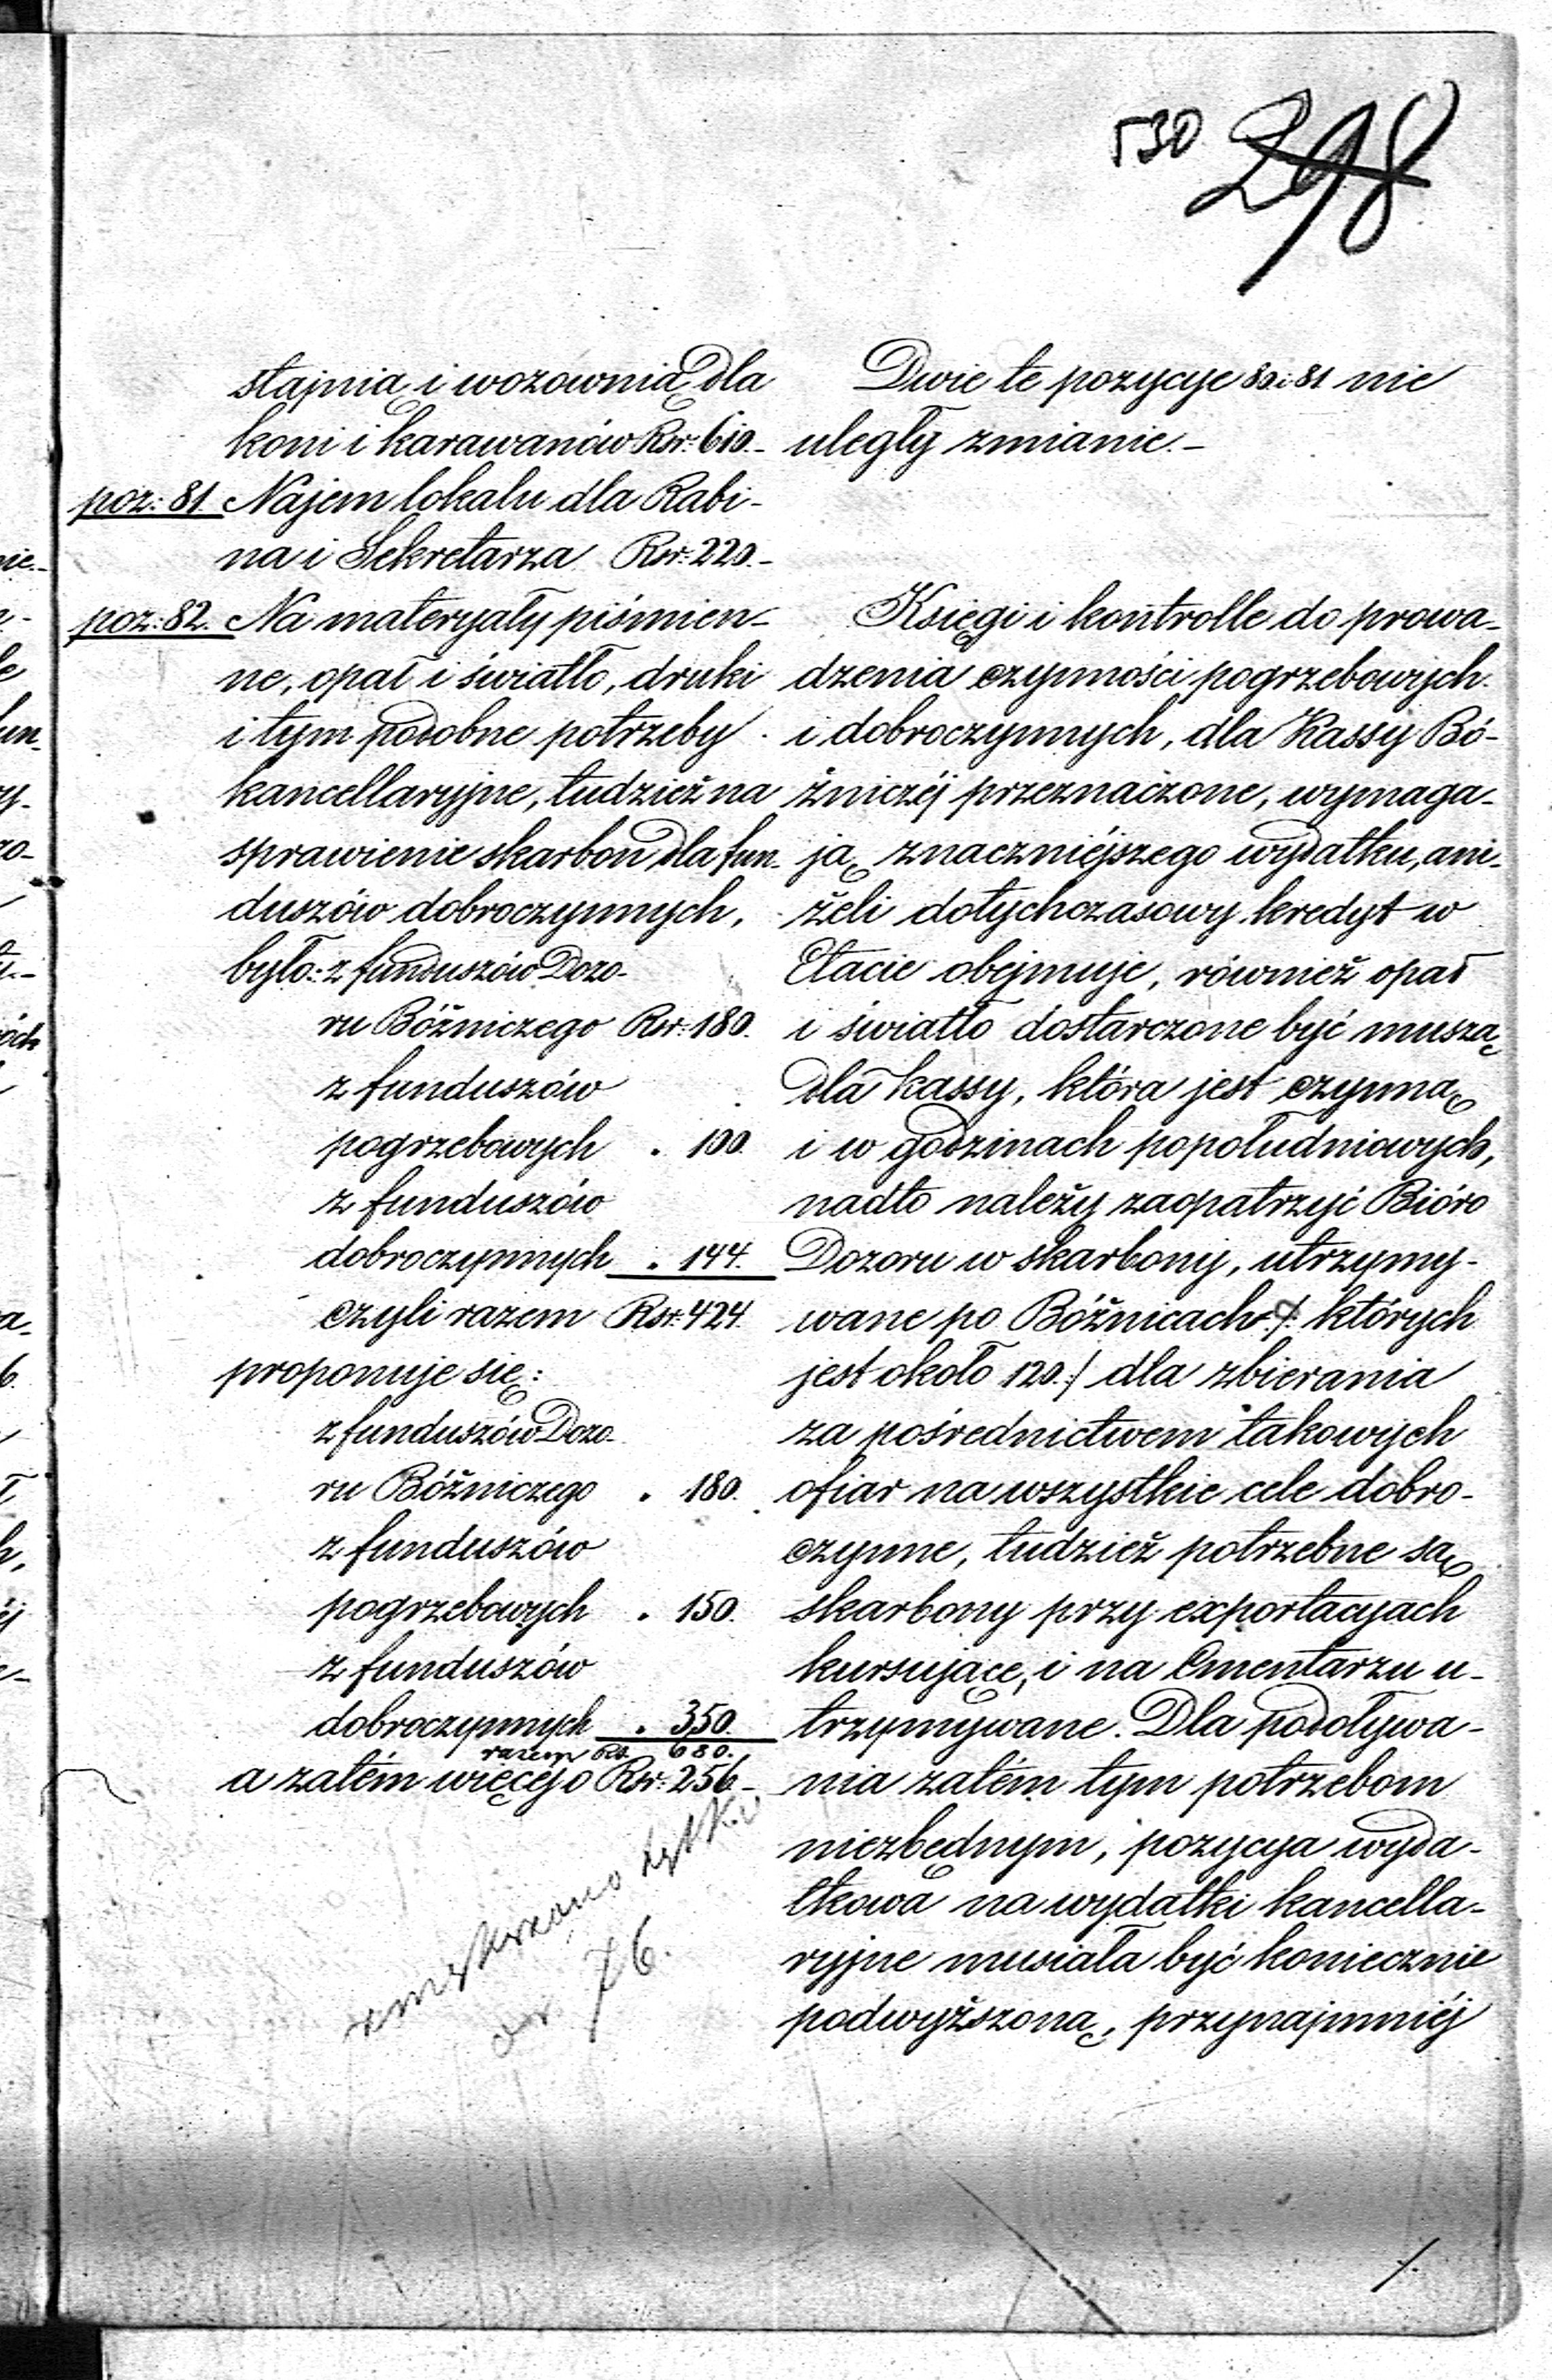 530 298
stajnią i wozownią dla
koni i karawanów Rsr: 610.-
poz: 81 Najem lokalu dla Rabi-
na i Sekretarza Rsr: 220.-
poz: 82. Na materyały piśmien-
ne, opał i światło, druki
i tym podobne potrzeby
kancellaryjne, tudzież na
sprawienie skarbon dla fun-
duszów dobroczynnych,
było: z funduszów Dozo-
ru Bóżniczego Rsr: 180.
z funduszów
pogrzebowych " 100.
z funduszów
dobroczynnych " 144.
czyli razem Rsr: 424.
proponuje się:
z funduszów Dozo-
ru Bóżniczego " 180.
z funduszów
pogrzebowych " 150.
z funduszów
dobroczynnych " 350.
razem Rs. 680.
a zatém więcéj o Rsr: 256.-
76.
Dwie te pozycye 80 i 81 nie
uległy zmianie.-
Księgi i kontrolle do prowa-
dzenia czynności pogrzebowych
i dobroczynnych, dla Kassy Bó-
żniczéj przeznaczone, wymaga-
ją znaczniéjszego wydatku, ani-
żeli dotychczasowy kredyt w
Etacie obejmuje, również opał
i światło dostarczone być muszą
dla kassy, która jest czynną
i w godzinach popołudniowych,
nadto należy zaopatrzyć Bióro
Dozoru w skarbony, utrzymy-
wane po Bóżnicach /: których
jest około 120 :/ dla zbierania
za pośrednictwem takowych
ofiar na wszystkie cele dobro-
czynne, tudzież potrzebne są
skarbony przy exportacyach
kursujące, i na Cmentarzu u-
trzymywane. Dla podoływa-
nia zatém tym potrzebom
niezbędnym, pozycya wyda-
tkowa na wydatki kancella-
ryjne musiała być koniecznie
podwyższoną, przynajmniéj
/.